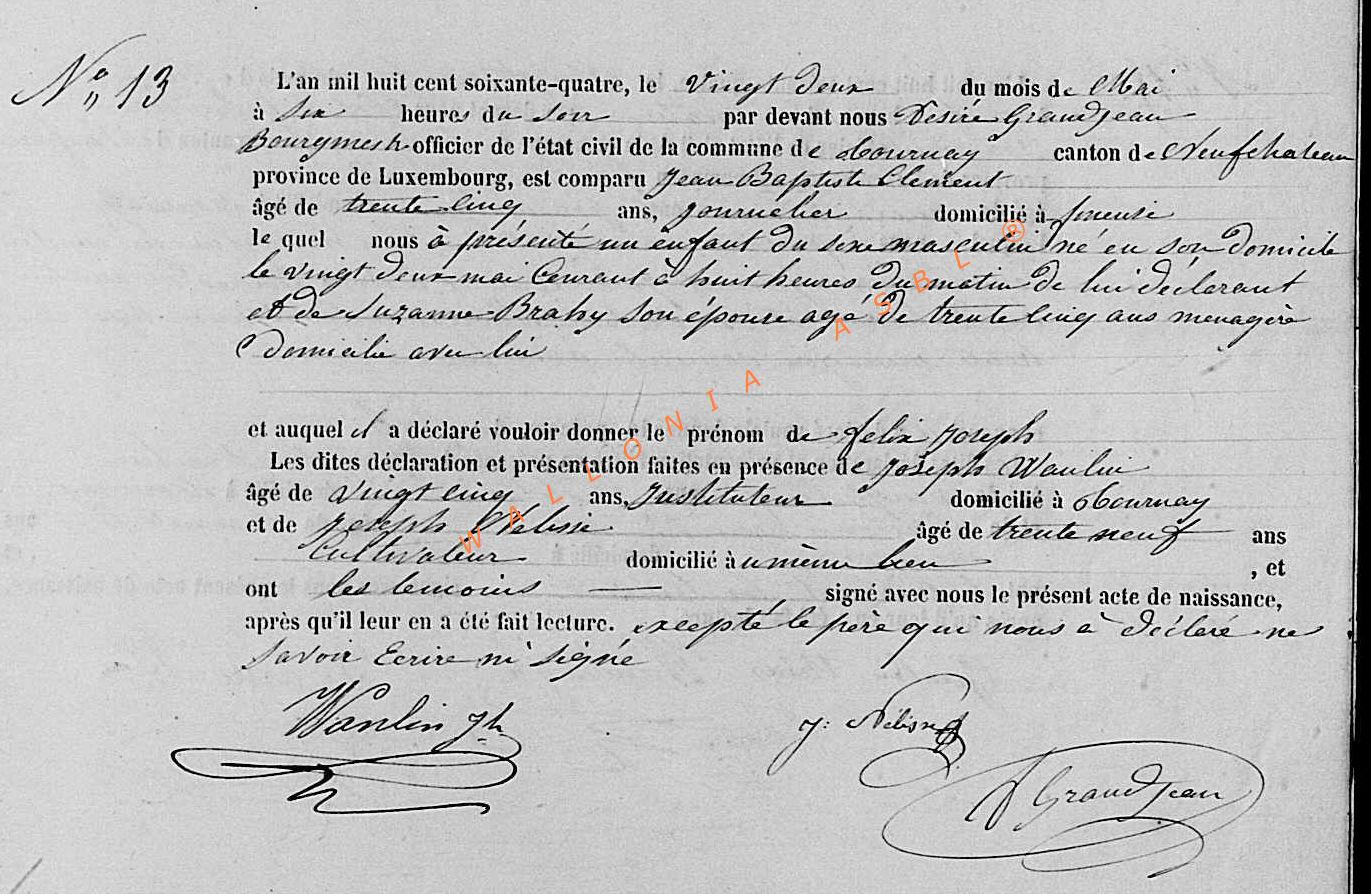 N° 13
L'an mil huit cent soixante-quatre, le vingt deux du mois de Mai
à six heures du soir par devant nous Désiré Grandjean
Bourgmestre officier de l'état civil de la commune de Tournay canton de Neufchateau
province de Luxembourg, est comparu Jean Baptiste Clement
âgé de trente cinq ans, journelier domicilié à
le quel nous à présenté un enfant du sexe masculin né en son domicile
le vingt deux mai Courant à huit heures du matin de lui déclarant
et de Suzanne Brahy son épouse agé de trente cinq ans menagère
domicilié avec lui
et auquel il a déclaré vouloir donner le prénom de felix Joseph
Les dites déclaration et présentation faites en présence de Joseph Wanlin
âgé de vingt cinq ans, Instituteur domicilié à Tournay
et de Joseph âgé de trente neuf ans
Cultivateur domicilié à u même lieu , et
ont les temoins signé avec nous le présent acte de naissance,
après qu'il leur en a été fait lecture. excepté le père qui nous à déclaré ne
savoir Ecrire ni signé
Wanlin Jh
J:
D Grandjean
WALLONIA ASBL ®